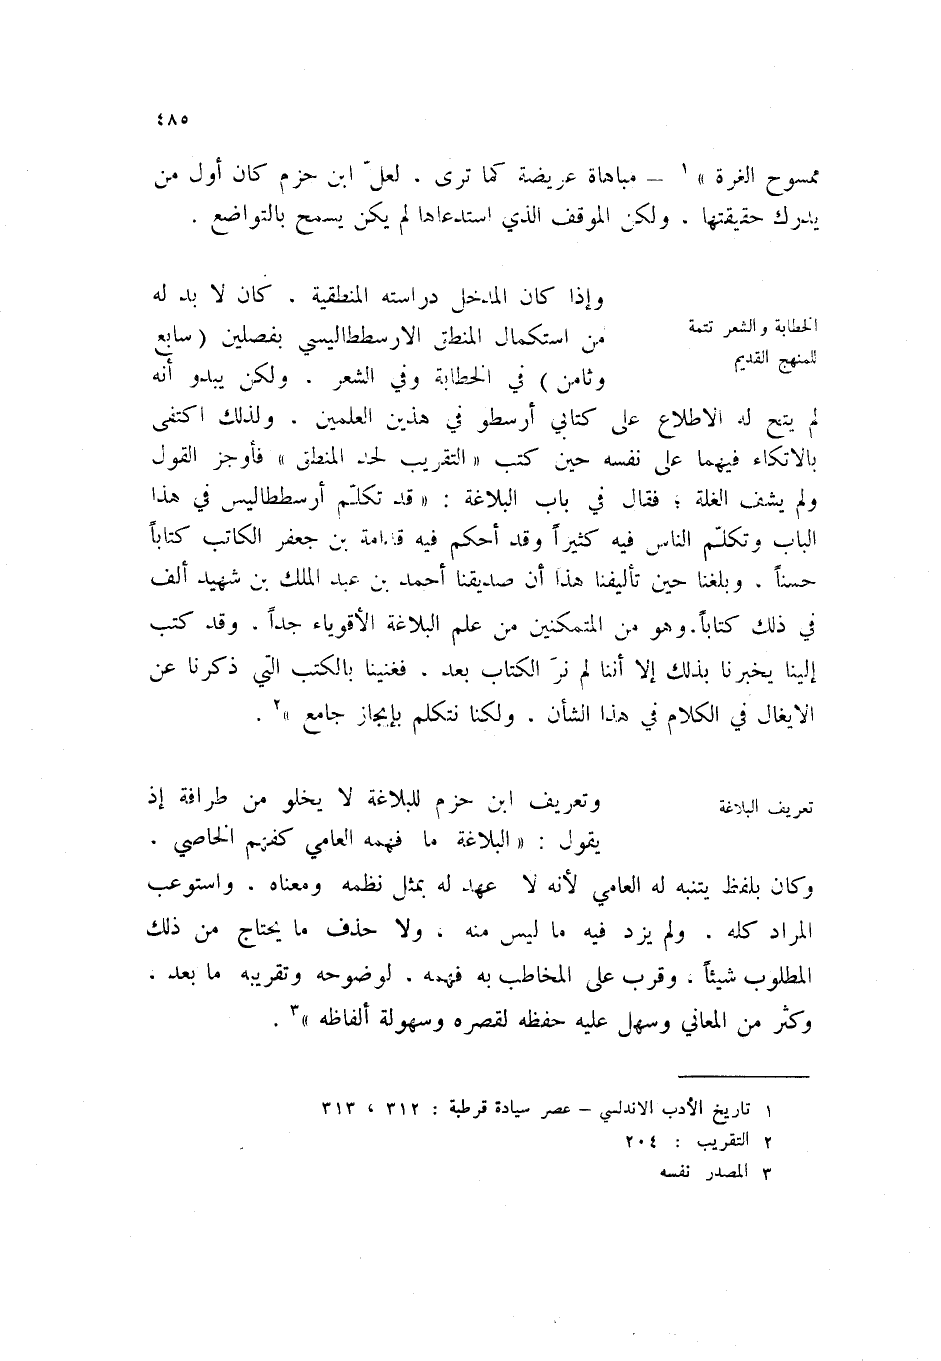 ٤٨٥
ممسوح الغرة »١ – مباهاة عريضة كما ترى . لعلّ ابن حزم كان أول من
يدرك حقيقتها . ولكن الموقف الذي استدعاها لم يكن يسمح بالتواضع .
الخطابة والشعر تتمة
للمنهج القديم
وإذا كان المدخل دراسته المنطقية . كان لا بد له
من استكمال المنطق الارسططاليسي بفصلين ( سابع
وثامن ) في الخطابة وفي الشعر . ولكن يبدو أنه
لم يتح له الاطلاع على كتابي أرسطو في هذين العلمين . ولذلك اكتفى
بالاتكاء فيهما على نفسه حين كتب « التقريب لحد المنطق » فأوجز القول
ولم يشف الغلة ؛ فقال في باب البلاغة : « قد تكلّم أرسططاليس في هذا
الباب وتكلّم الناس فيه كثيراً وقد أحكم فيه قدامة بن جعفر الكاتب كتاباً
حسناً . وبلغنا حين تأليفنا هذا أن صديقنا أحمد بن عبد الملك بن شهيد ألف
في ذلك كتاباً. وهو من المتمكنين من علم البلاغة الأقوياء جداً . وقد كتب
إلينا يخبرنا بذلك إلا أننا لم نرَ الكتاب بعد . فغنينا بالكتب التي ذكرنا عن
الايغال في الكلام في هذا الشأن . ولكنا نتكلم بإيجاز جامع »٢ .
تعريف البلاغة
وتعريف ابن حزم للبلاغة لا يخلو من طرافة إذ
يقول : « البلاغة ما فهمه العامي كفهم الخاصي .
وكان بلفظ يتنبه له العامي لأنه لا عهد له بمثل نظمه ومعناه . واستوعب
المراد كله . ولم يزد فيه ما ليس منه ، ولا حذف ما يحتاج من ذلك
المطلوب شيئاً . وقرب على المخاطب به فهمه . لوضوحه وتقريبه ما بعد .
وكثر من المعاني وسهل عليه حفظه لقصره وسهولة ألفاظه »٣ .
١ تاريخ الأدب الاندلسي – عصر سيادة قرطبة : ٣١٢ ، ٣١٣
٢ التقريب : ٢٠٤
٣ المصدر نفسه